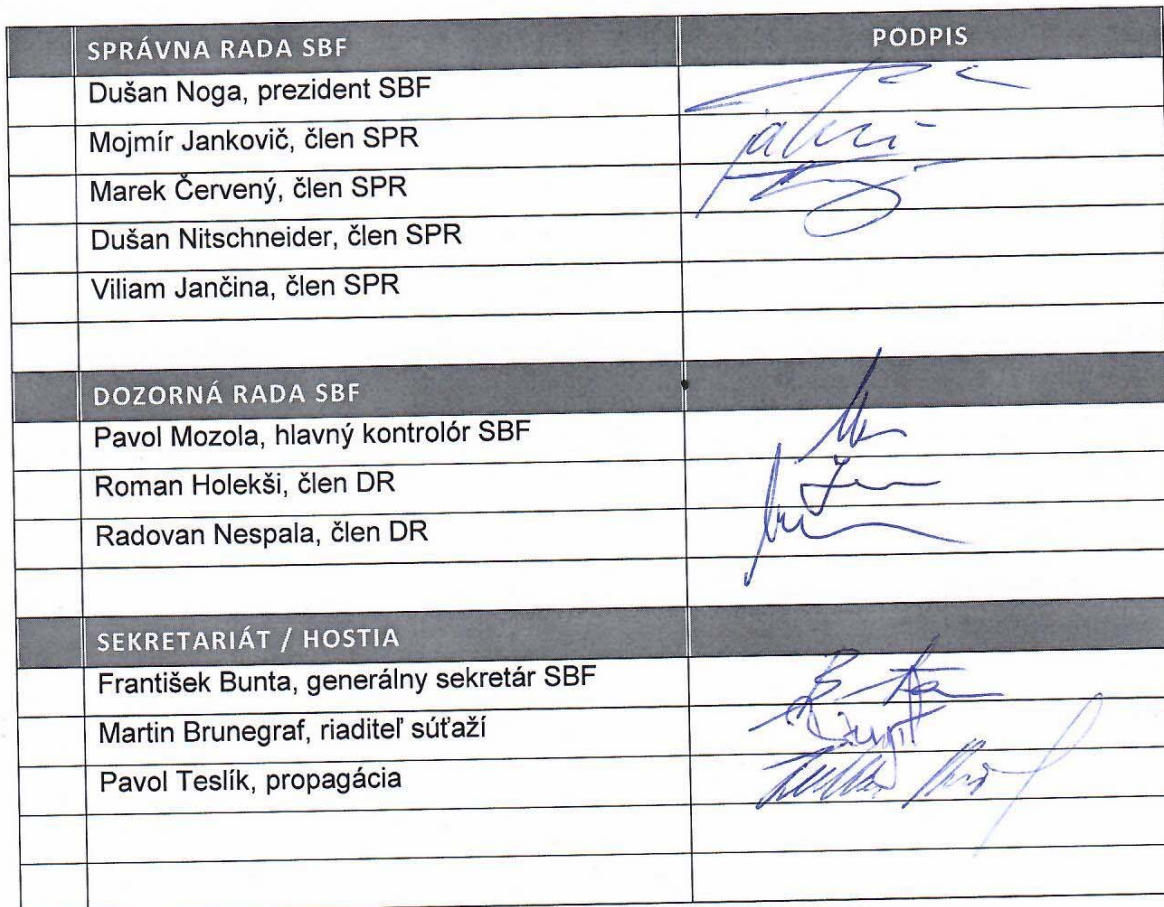 SPRÁVNA RADA SBF PODPIS
Dušan Noga, prezident SBF
Mojmír Jankovič, člen SPR
Marek Červený, člen SPR
Dušan Nitschneider, člen SPR
Viliam Jančina, člen SPR
DOZORNÁ RADA SBF
Pavol Mozola, hlavný kontrolór SBF
Roman Holekši, člen DR
Radovan Nespala, člen DR
SEKRETARIÁT / HOSTIA
František Bunta, generálny sekretár SBF
Martin Brunegraf, riaditeľ súťaží
Pavol Teslík, propagácia